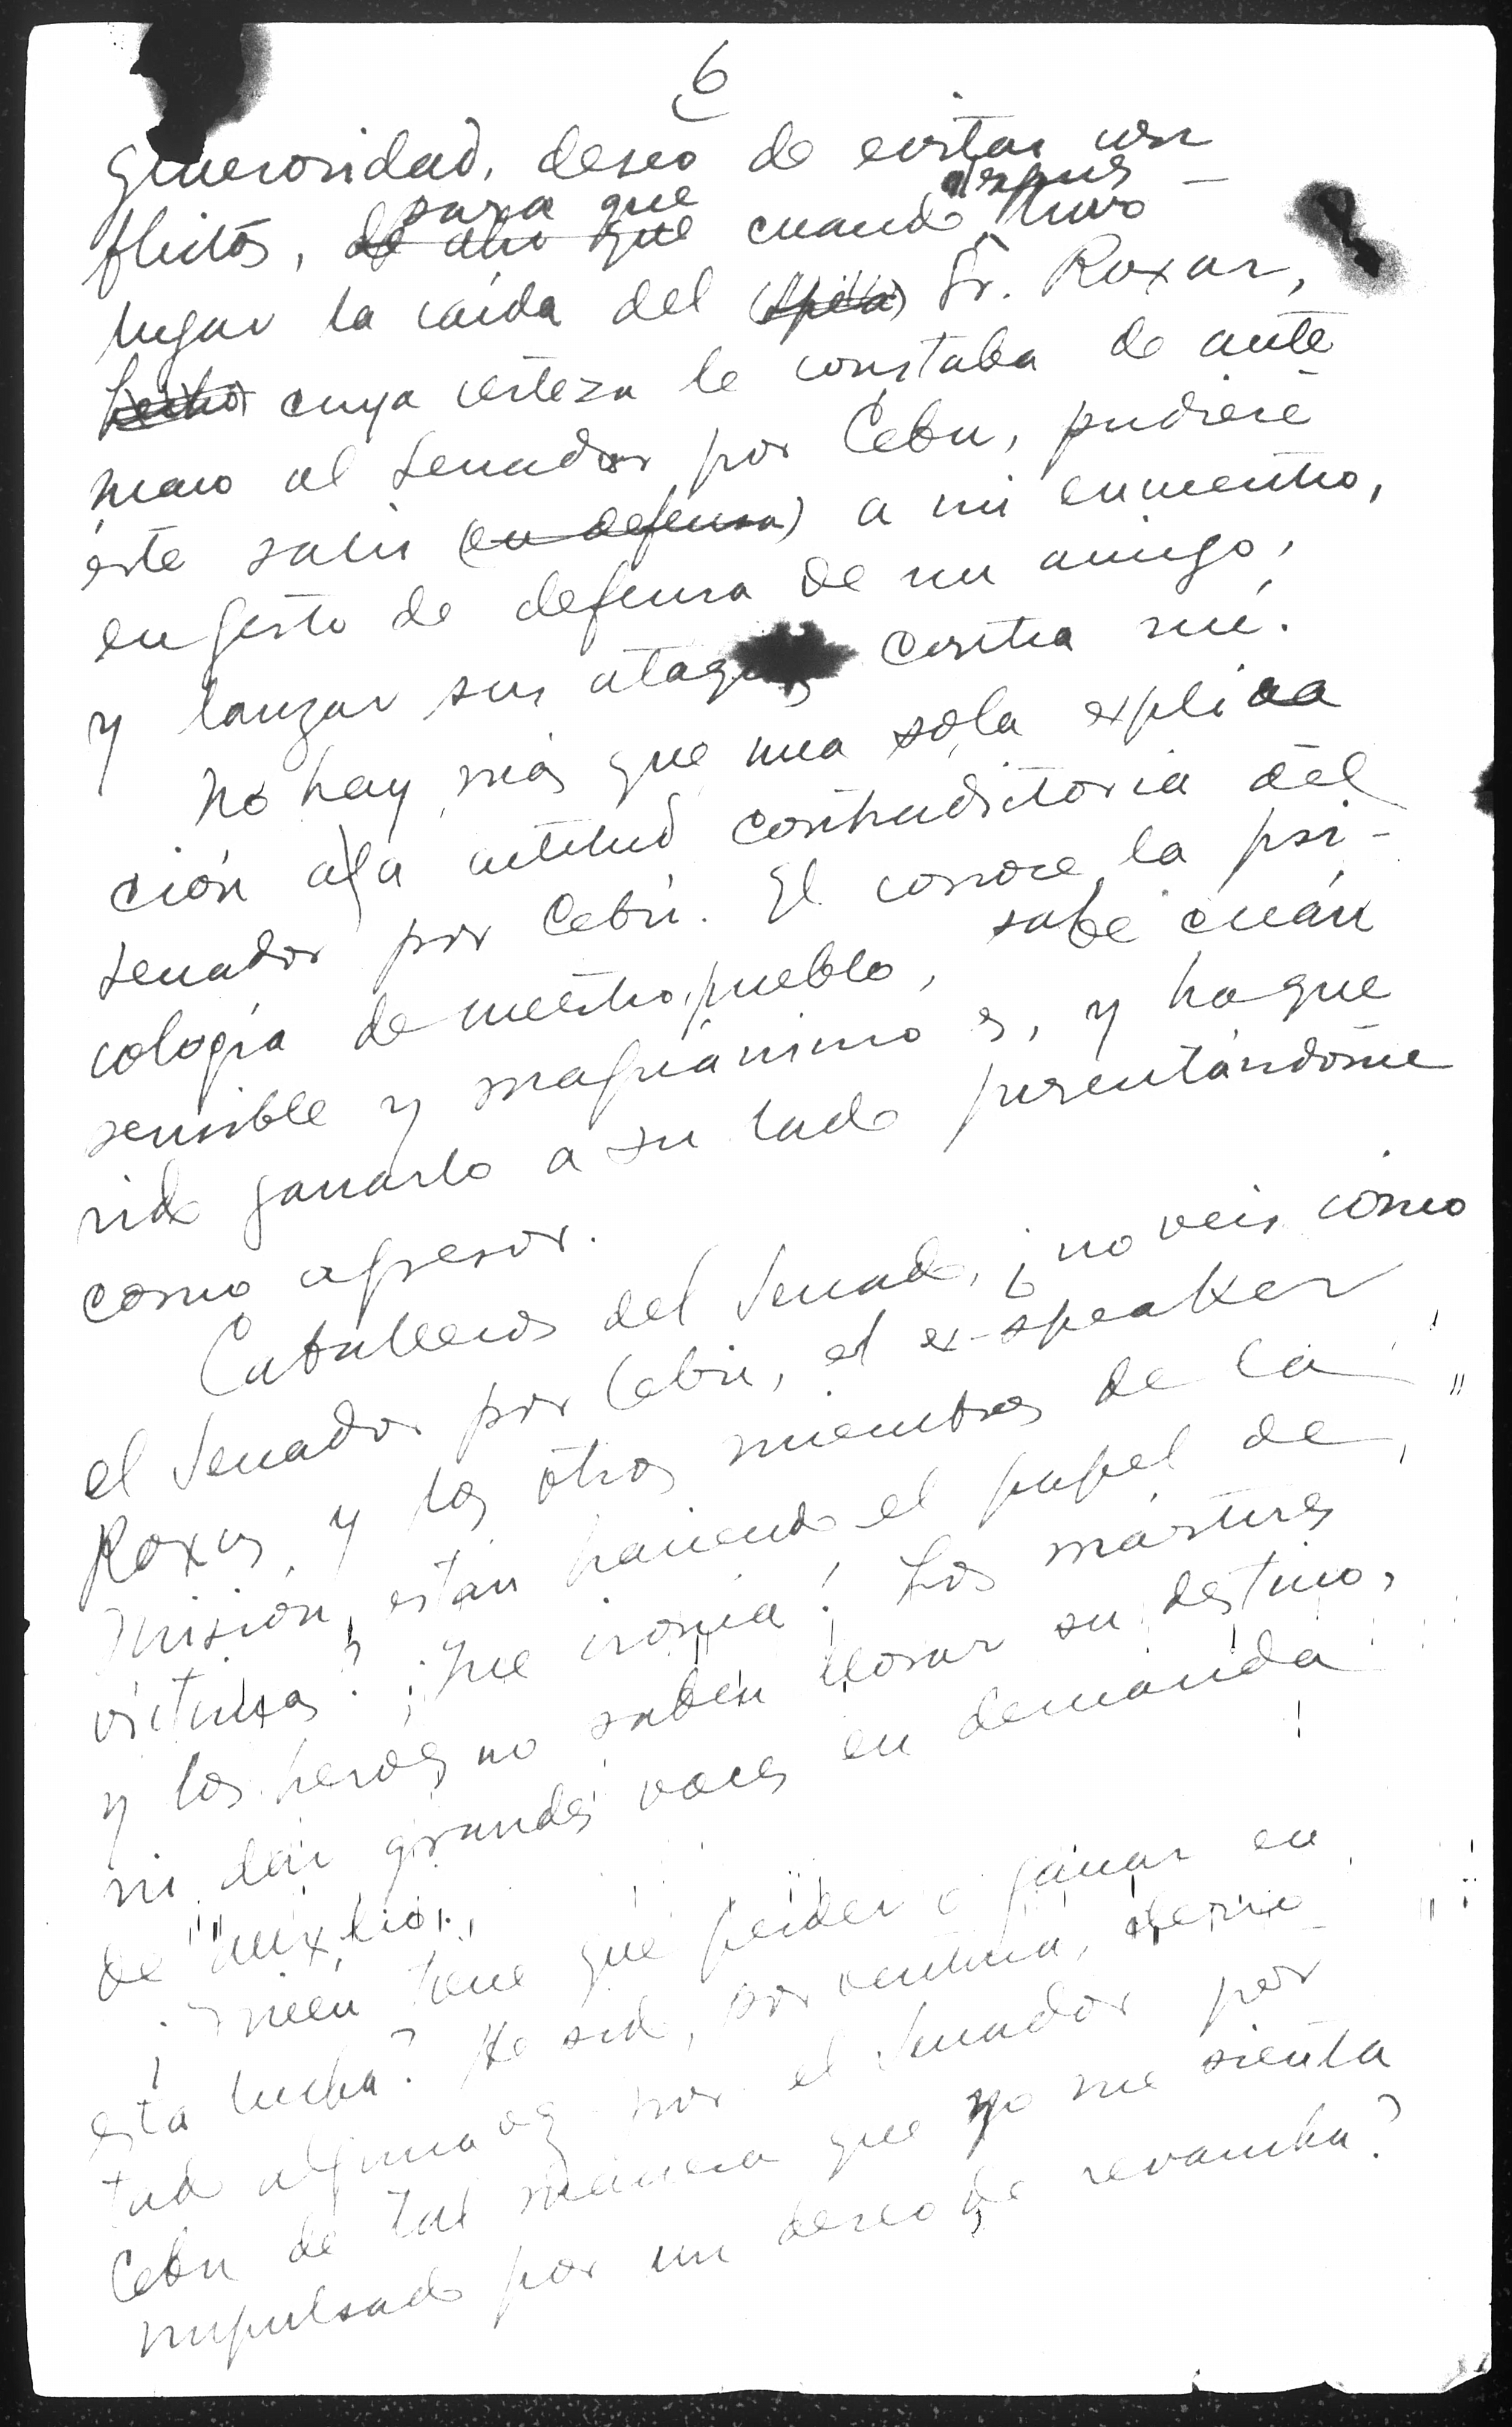 6
generosidad, deseo de evitar con
flictos, ~~de ahí que~~ para que cuando despues tuvo
lugar la caída del ~~(Spea)~~ Sr. Roxas,
~~hecho~~ cuya certeza le constaba de ante
mano al Senador por Cebu, pudiese
éste salir ~~(en defensa)~~ a mi encuentro,
en gesto de defensa de un amigo,
y lanzar sus ataques contra mí.
No hay más que una sola explica
ción a la actitud contradictoria del
Senador por Cebú. El conoce la psi-
cología de nuestro pueblo, sabe cuán
sensible y magnánimo es, y ha que
rido ganarlo a su lado presentándome
como agresor.
Caballeros del Senado, ¿no veis cómo
el Senador por Cebú, el ex-speaker
Roxas, y los otros miembros de la
Misión, están haciendo el papel de
víctimas? ¡Que ironía! Los mártires
y los heroes no saben llorar su destino,
ni dar grandes voces en demanda
de auxilio.
¿Quién tiene que perder o ganar en
esta lucha? He sido, por ventura, derro
tado alguna vez por el Senador por
Cebu de tal manera que yo me sienta
impulsado por un deseo de revancha?